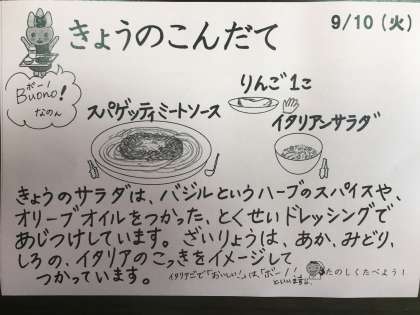 きょうのこんだて
9/10(火)
ボーノ
Buono!
なのん
りんご1こ
スパゲッティミートソース
イタリアンサラダ
きょうのサラダは、バジルというハーブのスパイスや、
オリーブオイルをつかった、とくせいドレッシングで
あじつけしています。ざいりょうは、あか、みどり、
しろの、イタリアのこっきをイメージして
つかっています。
イタリアごで「おいしい!」は、「ボーノ!」
といいます。
たのしくたべよう!